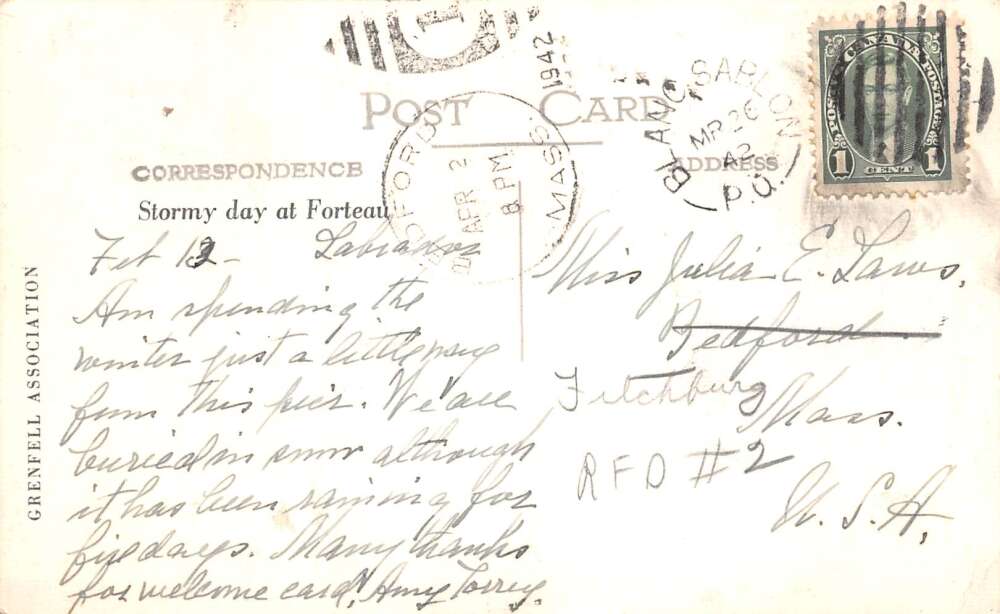 1
1942
POST CARD
CORRESPONDENCE
ADDRESS
BLANC SABLON
MR 26
42
P.O.
BEDFORD
APR 2
8 PM
MASS.
POSTES CANADA POSTAGE
1 CENT 1
Stormy day at Forteau
GRENFELL ASSOCIATION
Feb 12 - Labrador
Am spending the
winter just a little way
from this pier. We are
buried in snow although
it has been raining for
five days. Many thanks
for welcome card. Amy Torrey.
Miss Julia E. Laws,
Bedford
Fitchburg
Mass.
RFD #2
U.S.A,